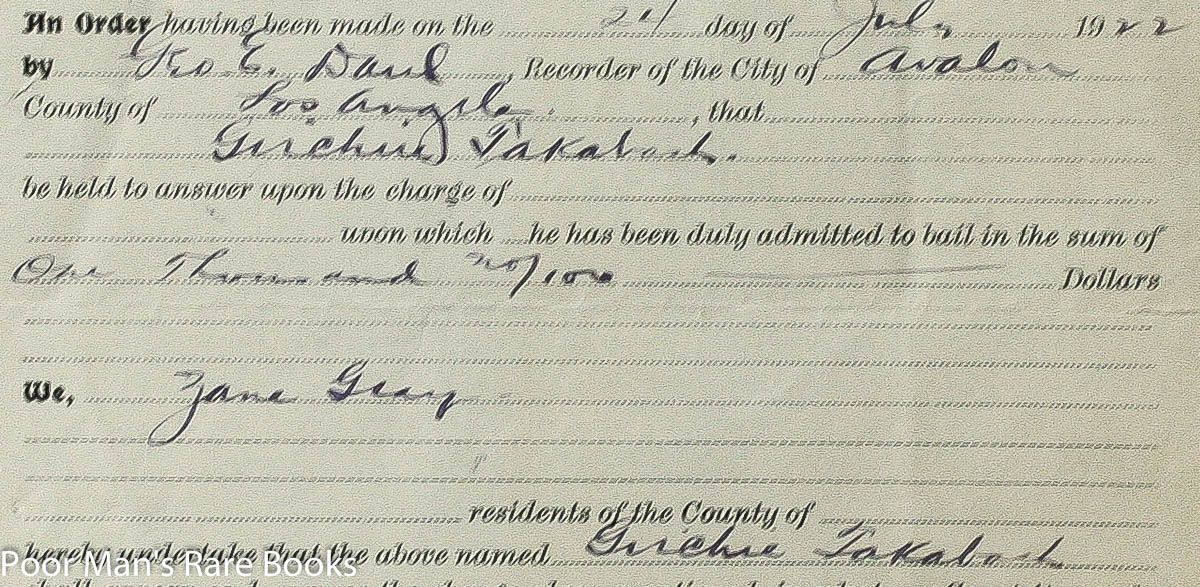 An Order having been made on the 21 day of July 1922
by Geo E. Dard, Recorder of the City of Avalon
County of Los Angeles, that
Guchie Takabash.
be held to answer upon the charge of
upon which he has been duly admitted to bail in the sum of
One Thousand no/100 Dollars
We, Zane Gray
residents of the County of
hereby undertake that the above named Guchie Takabash
Poor Man's Rare Books